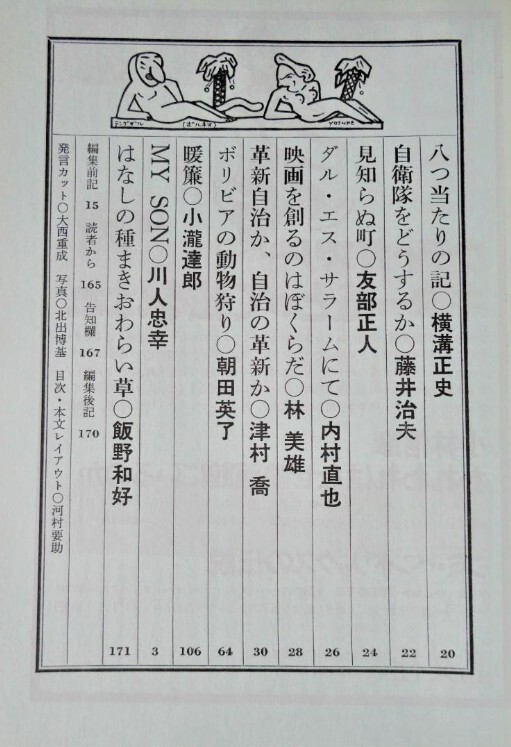 テングザル
(ボルネオ)
YOSUKE
八つ当たりの記〇横溝正史 20
自衛隊をどうするか〇藤井治夫 22
見知らぬ町〇友部正人 24
ダル・エス・サラームにて〇内村直也 26
映画を創るのはぼくらだ〇林 美雄 28
革新自治か、自治の革新か〇津村 喬 30
ボリビアの動物狩り〇朝田英了 64
暖簾〇小瀧達郎 106
MY SON〇川人忠幸 3
はなしの種まきおわらい草〇飯野和好 171
編集前記 15 読者から 165 告知欄 167 編集後記 170
発言カット〇大西重成 写真〇北出博基 目次・本文レイアウト〇河村要助